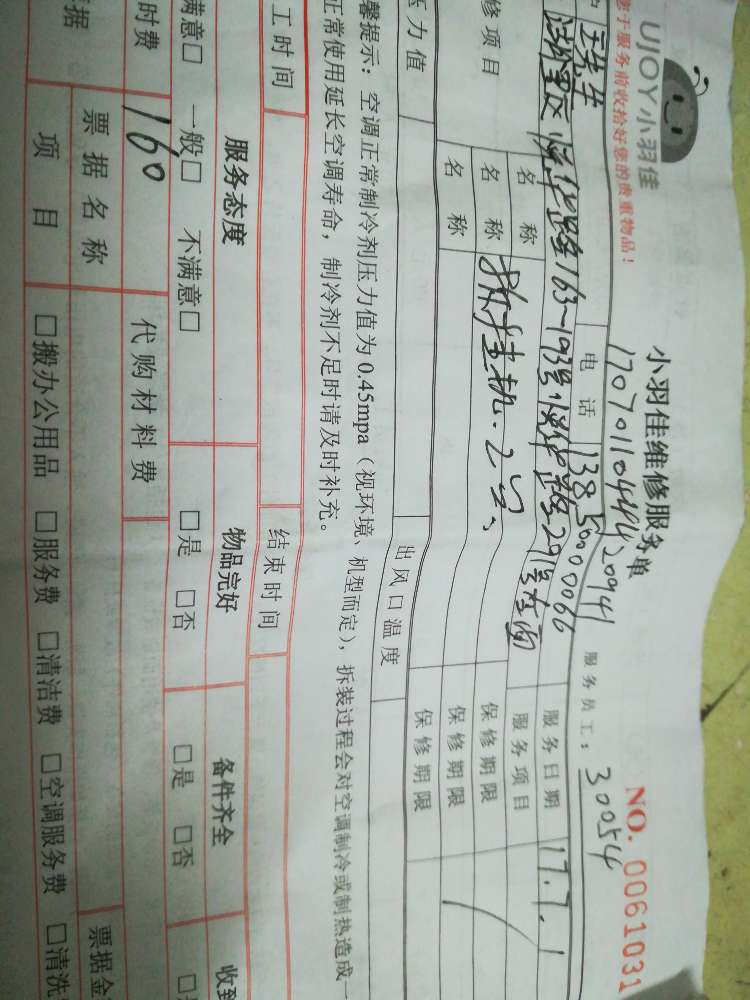 UJOY小羽佳
小羽佳维修服务单
NO. 0061031
您于服务前收拾好您的贵重物品！
17070110444420941
服务员工：30054
王先生
电话
13850000066
服务日期
17.7.1
163~193号
291号店面
修项目
名称
服务项目
名称
拆挂机.2台、
保修期限
名称
保修期限
保修期限
压力值
出风口温度
馨提示：空调正常制冷剂压力值为0.45mpa（视环境、机型而定），拆装过程会对空调制冷或制热造成一
正常使用延长空调寿命，制冷剂不足时请及时补充。
工时间
结束时间
服务态度
物品完好
备件齐全
收到
满意□ 一般□ 不满意□
□是 □否
□是 □否
时费
160
代购材料费
票据名称
票据金
据
项目
□搬办公用品 □服务费 □清洁费 □空调服务费 □清洗